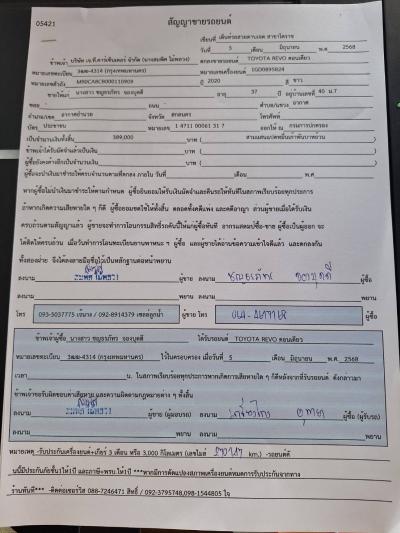 05421
สัญญาขายรถยนต์
เขียนที่ เต็นท์รถสวยตาบเจต สาขาโคราช
วันที่ 5 เดือน มิถุนายน พ.ศ. 2568
ข้าพเจ้า บริษัท เจ.ที.คาร์เซ็นเตอร์ จำกัด ตกลงขายรถยนต์ TOYOTA REVO ตอนเดียว
หมายเลขทะเบียน 3ฒฆ-4314 (กรุงเทพมหานคร) หมายเลขเครื่องยนต์
หมายเลขตัวถัง ปี 2020 สี ขาว
ขายให้แก่ นางสาว ชญธรภัทร จองบุตดี อายุ 37 ปี อยู่บ้านเลขที่ 40 ม.7
ซอย - ถนน - ตำบล/แขวง อากาศ
อำเภอ/เขต อากาศอำนวย จังหวัด สกลนคร
บัตร ประชาชน หมายเลข 1 4711 00061 31 7 ออกให้ ณ กรมการปกครอง
เป็นจำนวนเงินทั้งสิ้น 389,000 บาท ( สามแสนแปดหมื่นเก้าพันบาทถ้วน )
ข้าพเจ้าได้รับมัดจำแล้วเป็นเงิน บาท ( )
ผู้ซื้อยังคงค้างอีกเป็นจำนวนเงิน บาท ( )
ผู้ซื้อจะนำเงินมาชำระให้ครบจำนวนตามที่ตกลง ภายใน วันที่ เดือน พ.ศ.
หากผู้ซื้อไม่นำเงินมาชำระให้ตามกำหนด ผู้ซื้อยินยอมให้ริบเงินมัดจำและคืนรถให้ทันทีในสภาพเรียบร้อยทุกประการ
ถ้าหากเกิดความเสียหายใด ๆ ก็ดี ผู้ซื้อยอมชดใช้ให้ทั้งสิ้น ตลอดทั้งคดีแพ่ง และคดีอาญา ส่วนผู้ขายเมื่อได้รับเงิน
ครบถ้วนตามสัญญาแล้ว ผู้ขายจะทำการโอนกรรมสิทธิ์รถคันนี้ให้แก่ผู้ซื้อทันที อากรแสตมป์ซื้อ-ขาย ผู้ซื้อเป็นผู้ออก จะ
ได้คิดให้ครบถ้วน เมื่อวันทำการโอนทะเบียนยานพาหนะ ฯ ผู้ซื้อ และผู้ขายได้อ่านข้อความเข้าใจดีแล้ว และตกลงกัน
ทั้งสองฝ่าย จึงได้ลงลายมือชื่อไว้เป็นหลักฐานต่อหน้าพยาน
ลงนาม ผู้ขาย ลงนาม ผู้ซื้อ
ลงนาม พยาน ลงนาม พยาน
โทร 093-5037775 / 092-8914379 เซลล์ลูกน้ำ ผู้ขาย โทร ผู้ซื้อ
ข้าพเจ้าผู้ซื้อ นางสาว ชญธรภัทร จองบุตดี ได้รับรถยนต์ TOYOTA REVO ตอนเดียว
หมายเลขทะเบียน 3ฒฆ-4314 (กรุงเทพมหานคร) ไว้ในครอบครอง เมื่อวันที่ 5 เดือน มิถุนายน พ.ศ. 2568
เวลา น. ในสภาพเรียบร้อยทุกประการหากเกิดการเสียหายใด ๆ ก็ดีหลังจากที่รับรถยนต์ ดังกล่าวมา
ข้าพเจ้าขอรับผิดชอบค่าเสียหาย และความผิดตามกฎหมายต่าง ๆ ทั้งสิ้น
ลงนาม ผู้ขาย (ผู้มอบรถ) ลงนาม ผู้ซื้อ (ผู้รับรถ)
ลงนาม พยาน ลงนาม พยาน
หมายเหตุ -รับประกันเครื่องยนต์+เกียร์ 3 เดือน หรือ 3,000 กิโลเมตร (เลขไมล์ km.) -รถยนต์คั
นนี้มีประกันภัยชั้น1ให้1ปี และภาษี+พรบ.ให้1ปี ***หากมีการดัดแปลงสภาพเครื่องยนต์หมดการรับประกันจากทาง
ร้านทันที*** -ติดต่อเซอร์วิส 088-7246471 สิทธิ์ / 092-3795748,098-1544805 ใจ